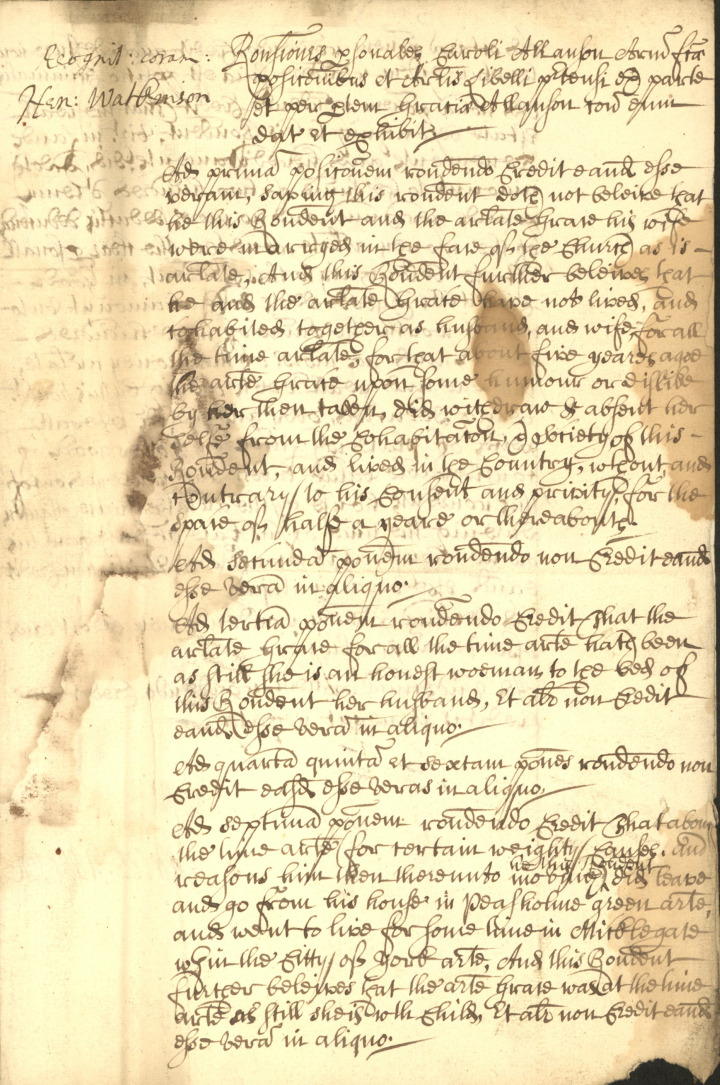 Recognit: coram:
Hen: Watkinson
Responsiones psonales Caroli Allanson Armi fca
positionibus et Arlis Libelli ptensi ex parte
et per ptem Gracia Allanson con eum
dat et exhibit
Ad prima positionem rondendo Credit eand esse
veram, saving this rondent doth not beleive that
he this Rondent and the arlate Grace his wife
were marryed in the face of the Church as is
arlate, And this Rondent further beleives that
he and the arlate Grace have not lived, and
cohabited together as husband, and wife for all
the time arlate, for that about five yeares agoe
the arte Grace upon some humour or dislike
by her then taken, did withdraw & absent her
selfe from the Cohabitacon, & society of this
Rondent, and lived in the Country, wthout and
Contrary to his Consent and privity, for the
space of half a yeare or thereabouts
Ad secunda ponem rondendo non Credit eand
esse vera in aliquo.
Ad tertia ponem rondendo Credit That the
arlate Grace for all the time arte hath been
as still she is an honest woeman to the bed of
this Rondent her husband, Et alr non Credit
eand esse vera in aliquo.
Ad quarta quinta et sextam pones rondendo non
Credit easd esse veras in aliquo.
Ad septima ponem rondendo Credit That about
the time arte for certain weighty Causes, and
reasons him then thereunto moving he this Rondent did leave
and go from his house in Peasholme green arte,
and went to live for some time in Micklegate
wthin the Citty of York arte, And this Rondent
further beleives that the arte Grace was at the time
arte as still she is wth Child, Et alr non Credit eand
esse vera in aliquo.